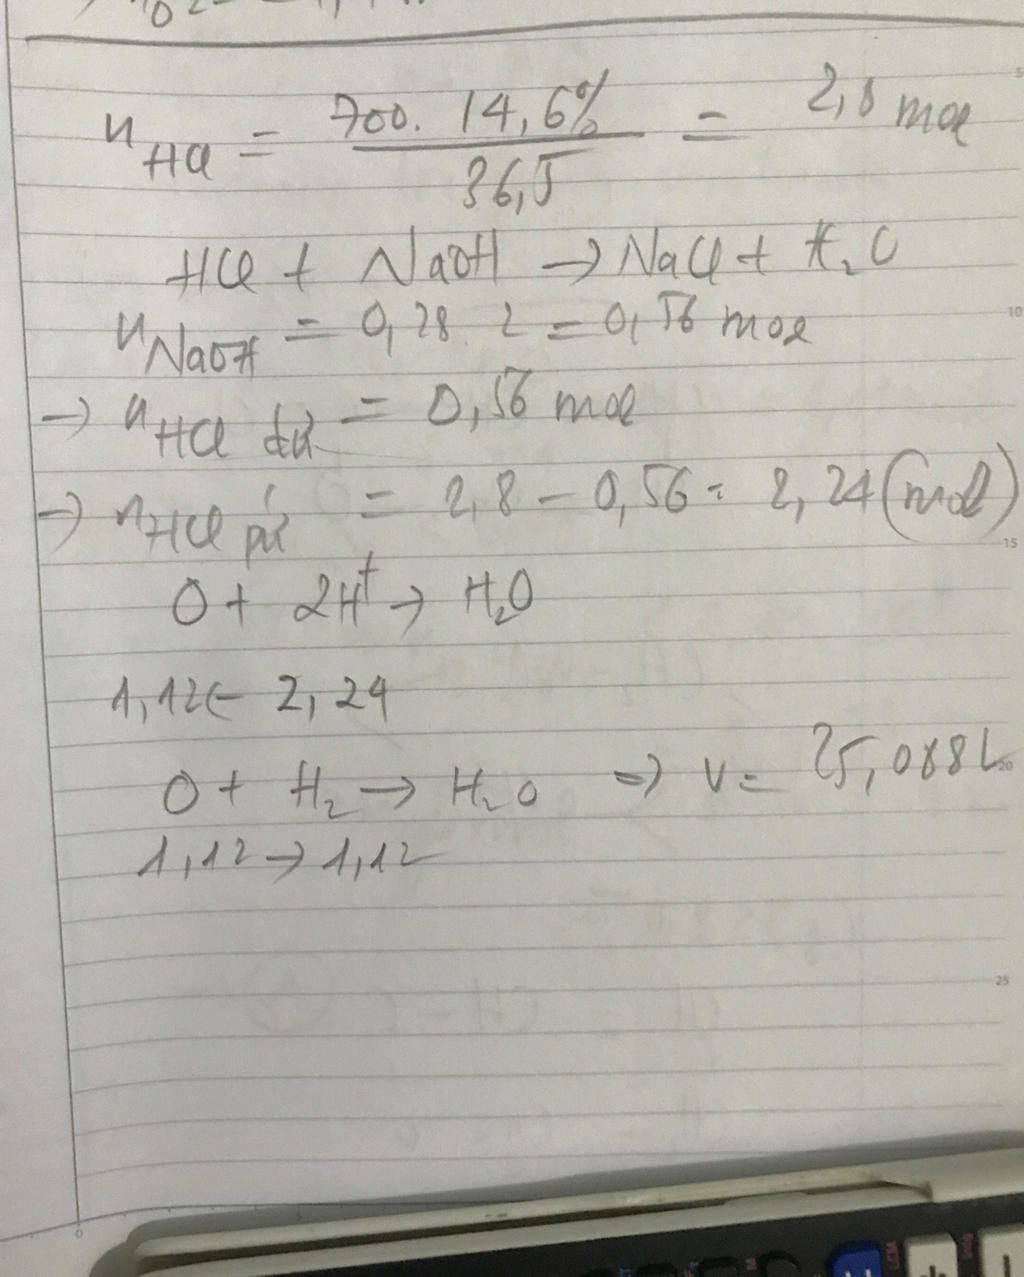 n HCl = 700. 14,6% / 36,5 = 2,8 mol
HCl + NaOH → NaCl + H₂O
n NaOH = 0,28 . 2 = 0,56 mol
→ n HCl dư = 0,56 mol
→ n HCl pứ = 2,8 - 0,56 = 2,24 (mol)
O + 2H⁺ → H₂O
1,12 ← 2,24
O + H₂ → H₂O ⇒ V = 25,088 L
1,12 → 1,12
5
10
15
20
25
0